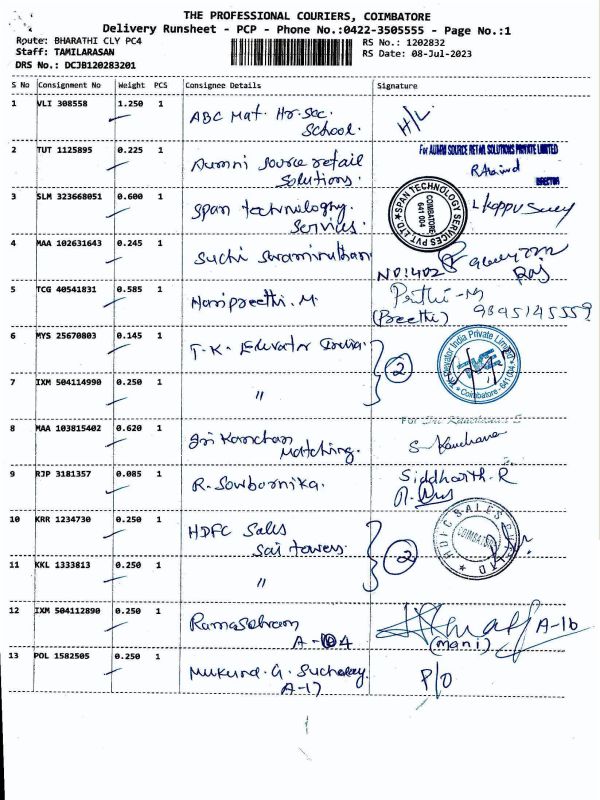 THE PROFESSIONAL COURIERS, COIMBATORE
Delivery Runsheet - PCP - Phone No.:0422-3505555 - Page No.:1
Route: BHARATHI CLY PC4
RS No.: 1202832
Staff: TAMILARASAN
RS Date: 08-Jul-2023
DRS No.: DCJB120283201
S No Consignment No Weight PCS Consignee Details Signature
1 VLI 308558 1.250 1 ABC Mat. Hr. Sec. H/L
School.
2 TUT 1125895 0.225 1 Aumni source retail For AUMNI SOURCE RETAIL SOLUTIONS PRIVATE LIMITED
Solutions.
DIRECTOR
3 SLM 323668051 0.600 1 Span technology. SPAN TECHNOLOGY SERVICES PVT LTD. COIMBATORE 641 004
Services.
4 MAA 102631643 0.245 1 Suchi NO:402
5 TCG 40541831 0.585 1 Haripreethi. M Prithi-M
(Preethi) 9895145559
6 MYS 25670803 0.145 1 T.K. Elevator India. 2 Elevator India Private Limited Coimbatore - 641 004
7 IXM 504114990 0.250 1 "
8 MAA 103815402 0.620 1 Sri Kanchan For Sri
Matching. S Kanchana
9 RJP 3181357 0.085 1 R. Sowbarnika. Siddharth.R
10 KRR 1234730 0.250 1 HDFC Sales 2 SALES COIMBATORE
Sai towers.
11 KKL 1333813 0.250 1 "
12 IXM 504112890 0.250 1 A-16
A-104 (mani)
13 POL 1582505 0.250 1 Mukund. G. P/O
A-17